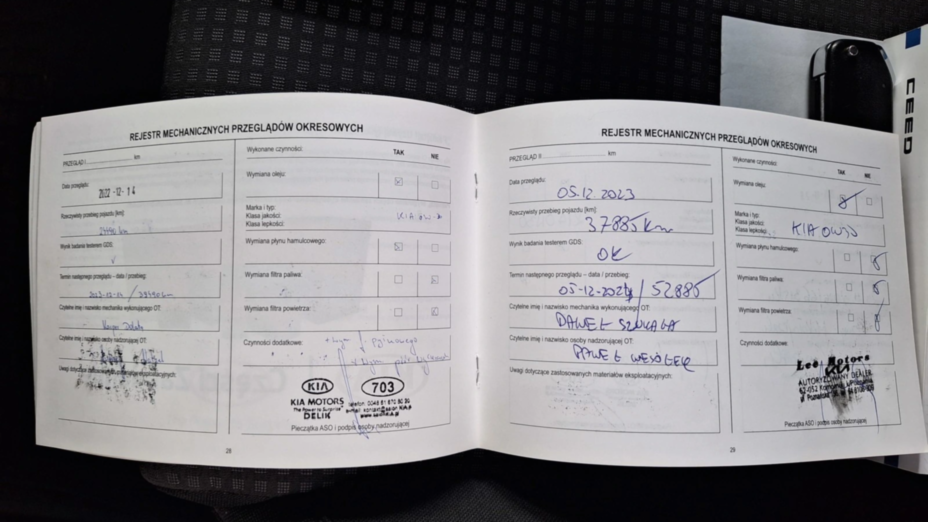 REJESTR MECHANICZNYCH PRZEGLĄDÓW OKRESOWYCH
PRZEGLĄD I km
Data przeglądu:
2022-12-14
Rzeczywisty przebieg pojazdu [km]:
Wynik badania testerem GDS:
Termin następnego przeglądu – data / przebieg:
Czytelne imię i nazwisko mechanika wykonującego OT:
Czytelne imię i nazwisko osoby nadzorującej OT:
Uwagi dotyczące zastosowanych materiałów eksploatacyjnych:
Wykonane czynności:
TAK NIE
Wymiana oleju:
Marka i typ:
Klasa jakości:
Klasa lepkości:
KIA
Wymiana płynu hamulcowego:
Wymiana filtra paliwa:
Wymiana filtra powietrza:
Czynności dodatkowe:
KIA 703
KIA MOTORS
The Power to Surprise
DELIK
Pieczątka ASO i podpis osoby nadzorującej
28
REJESTR MECHANICZNYCH PRZEGLĄDÓW OKRESOWYCH
PRZEGLĄD II km
Data przeglądu:
05.12.2023
Rzeczywisty przebieg pojazdu [km]:
37885km
Wynik badania testerem GDS:
OK
Termin następnego przeglądu – data / przebieg:
05-12-2024 / 52885
Czytelne imię i nazwisko mechanika wykonującego OT:
PAWEŁ SZKAŁA
Czytelne imię i nazwisko osoby nadzorującej OT:
PAWEŁ
Uwagi dotyczące zastosowanych materiałów eksploatacyjnych:
Wykonane czynności:
TAK NIE
Wymiana oleju:
Marka i typ:
Klasa jakości:
Klasa lepkości:
KIA OW30
Wymiana płynu hamulcowego:
Wymiana filtra paliwa:
Wymiana filtra powietrza:
Czynności dodatkowe:
Motors
AUTORYZOWANY DEALER
Pieczątka ASO i podpis osoby nadzorującej
29
CEED